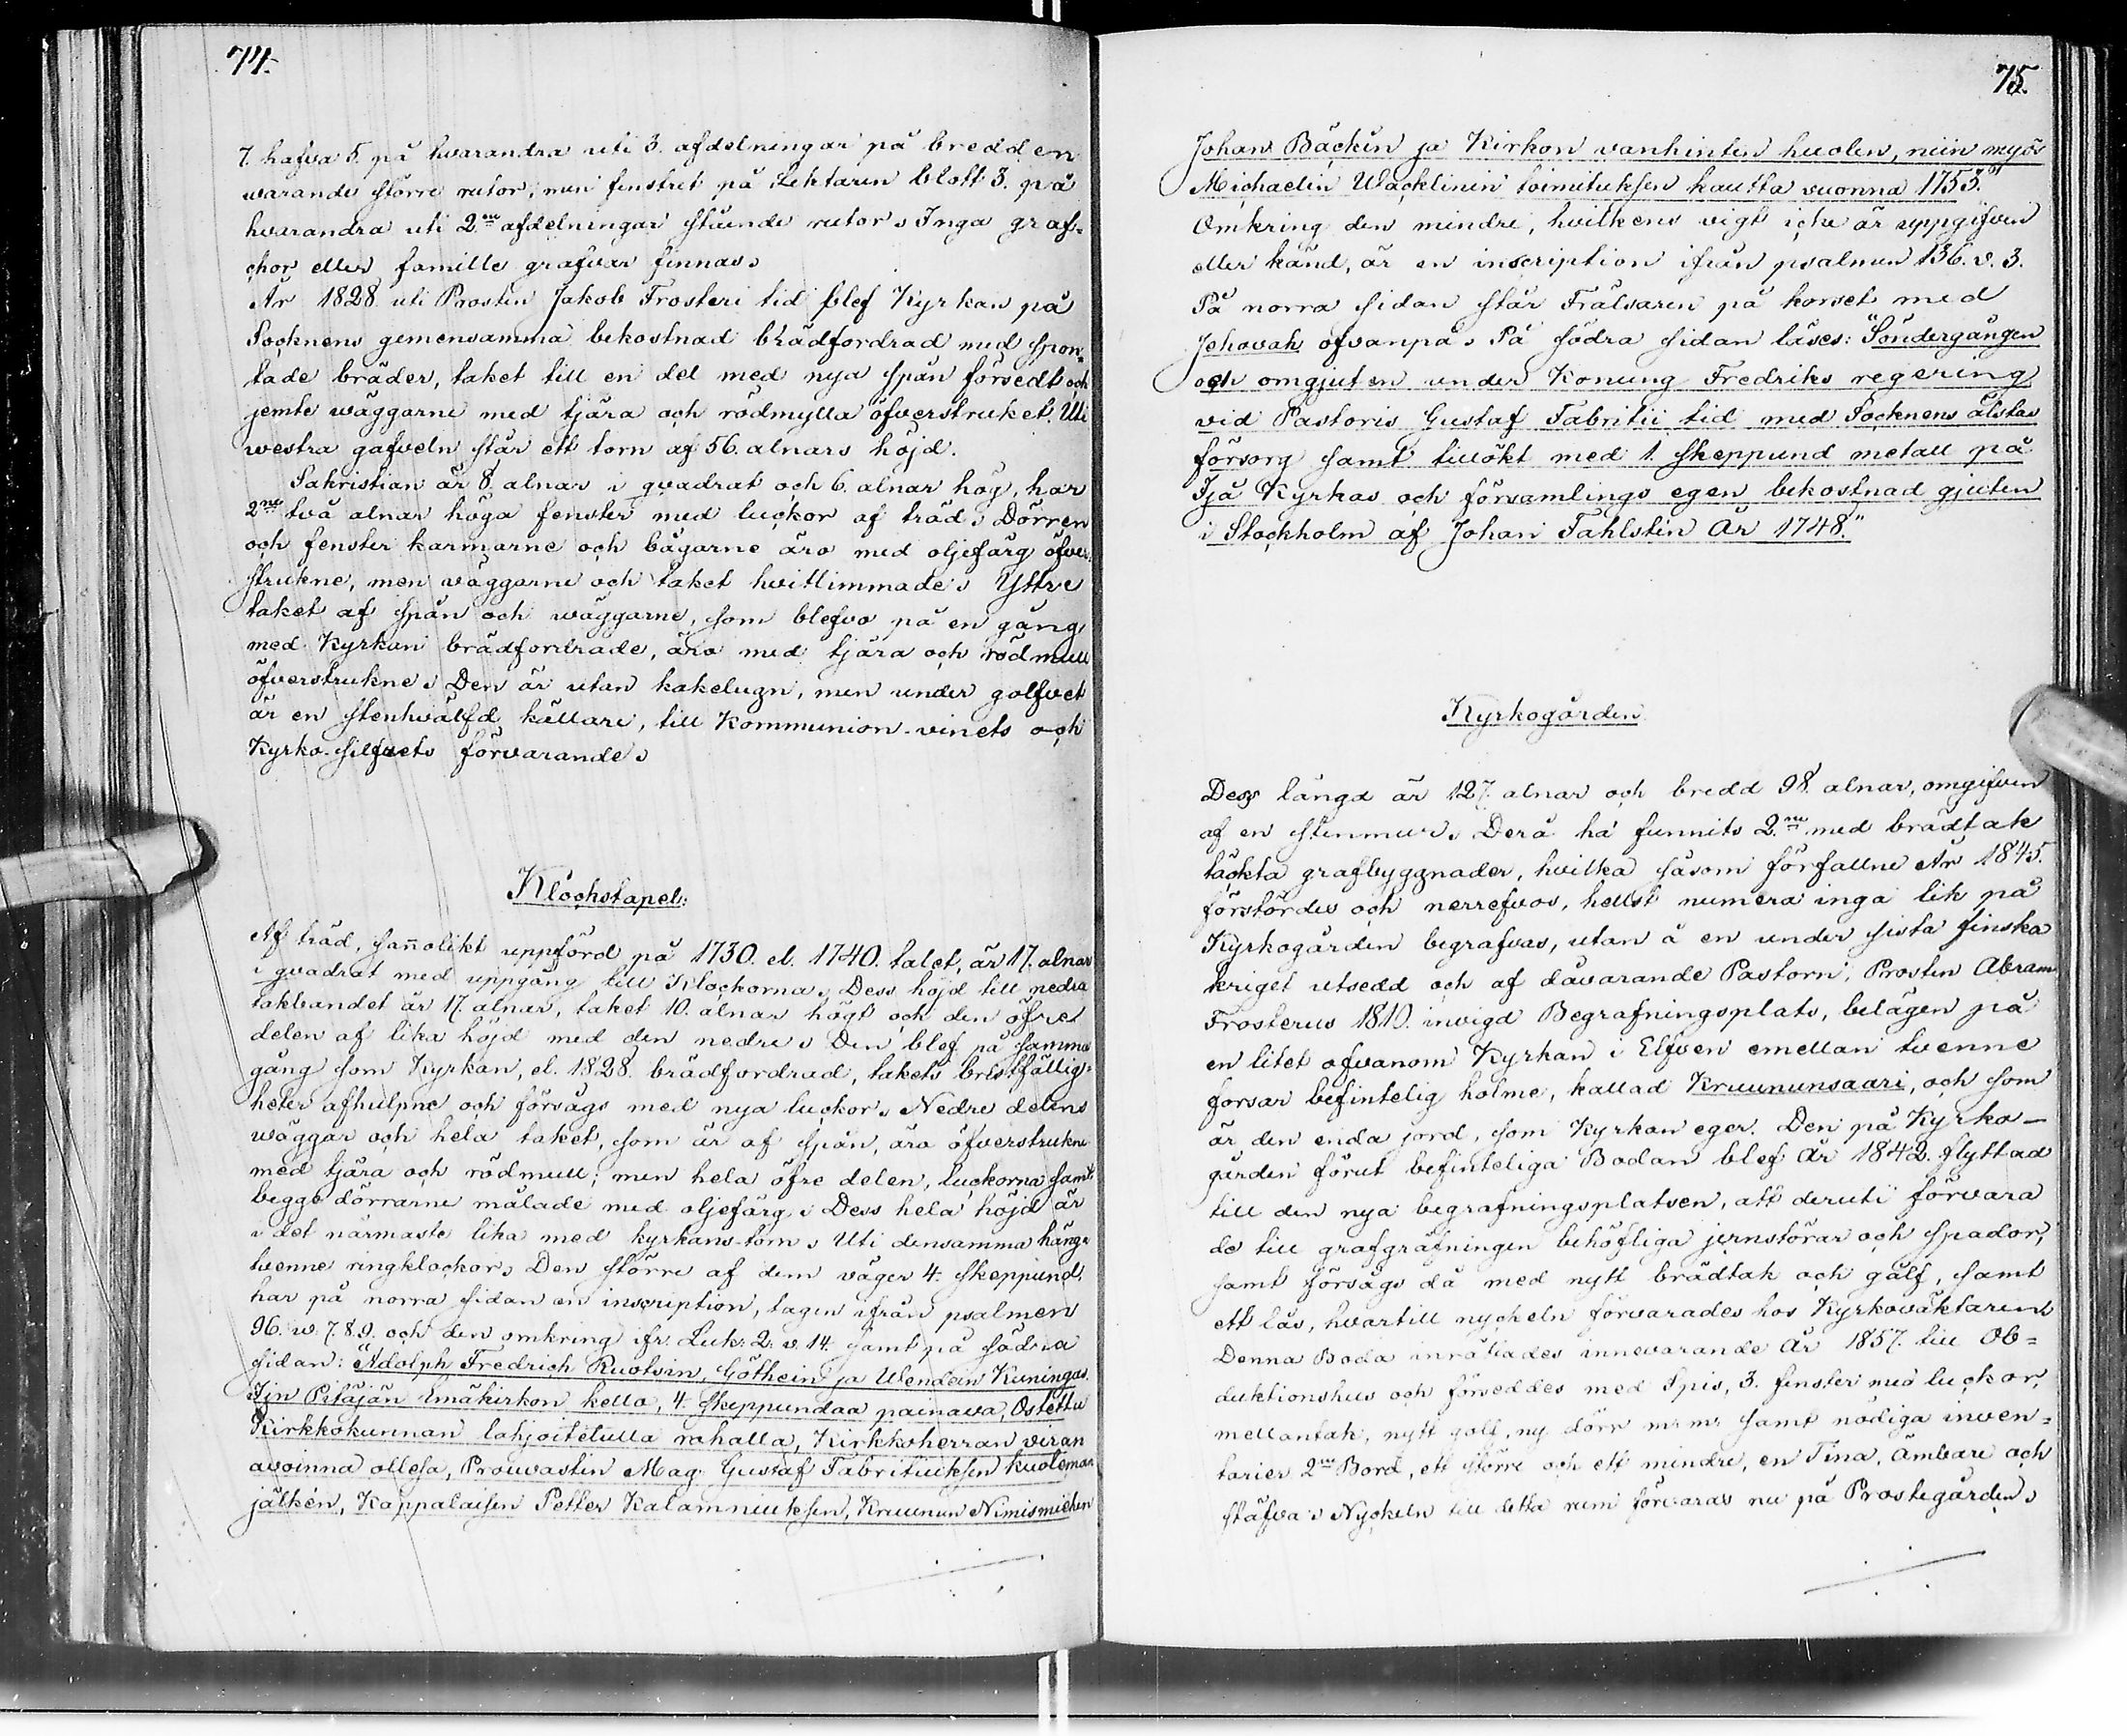 74.
7. hafva 5. på hvarandra uti 3. afdelningar på bredden
warande större rutor, men fenstret på Lektaren blott 3. på
hvarandra uti 2.ne afdelningar stående rutor. Inga graf-
chor eller famille grafvar finnas.
År 1828. uti Prosten Jakob Frosteri tid blef Kyrkan på
Socknens gemensamma bekostnad brädfordrad med spon-
tade bräder, taket till en del med nya spån försedt och
jemte wäggarne med tjära och rödmylla öfverstruket. Uti
westra gafveln står ett torn af 56. alnars höjd.
Sakristian är 8. alnar i qvadrat och 6. alnar hög, har
2ne två alnar höga fenster med luckor af träd. Dörren
och fenster karmarne och bågarne äro med oljefärg öfver-
strukne, men väggarne och taket hvitlimmade. Yttre
taket af spån och wäggarne, som blefvo på en gång
med Kyrkan brädfordrade, äro med tjära och rödmull
öfverstrukne. Den är utan kakelugn, men under golfvet
är en stenhvälfd källare, till Kommunion-vinets och
Kyrko-silfvets förvarande.
Klockstapel.
Af träd, sannolikt uppförd på 1730. el. 1740. talet, är 17. alnar
i qvadrat med uppgång till Klockorna. Dess höjd till nedra
takbandet är 17. alnar, taket 10. alnar högt och den öfre
delen af lika höjd med den nedre. Den blef på samma
gång som Kyrkan, el. 1828. brädfordrad, takets bristfällig-
heter afhulpne och försågs med nya luckor. Nedre delens
wäggar och hela taket, som är af spån, äro öfverstrukne
med tjära och rödmull; men hela öfre delen, luckorna samt
begge dörrarne målade med oljefärg. Dess hela höjd är
i det närmaste lika med kyrkans torn. Uti densamma hänga
tvenne ringklockor. Den större af dem väger 4. skeppund,
har på norra sidan en inscription, tagen ifrån psalmen
96. w. 7.8.9. och den omkring ifr. Luk. 2. v. 14. samt på södra
sidan: "Adolph Fredrich Ruotsin, Göthein ja Wendein Kuningas.
Ijin Pitäjän Emäkirkon kello, 4. skeppundaa painava, Ostettu
Kirkkokunnan lahjoitetulla rahalla, Kirkkoherran viran
avoinna ollesa, Prouvastin Mag. Gustaf Fabritiuksen kuoleman
jälken, Kappalaisen Petter Kalamniuksen, Kruunun Nimismiehen
75.
Johan Bäckin ja Kirkon vanhinten huolen, niin myös
Michaelin Wacklinin toimituksen kautta vuonna 1753."
Omkring den mindre, hvilkens vigt icke är uppgifven
eller känd, är en inscription ifrån psalmen 136. v. 3.
På norra sidan står Frälsaren på korset med
Jehovah ofvanpå. På södra sidan läses: "Söndergången
och omgjuten under Konung Fredriks regering
vid Pastoris Gustaf Fabritii tid med Socknens älstas
försorg samt tillökt med 1. skeppund metall på
Ijå Kyrkas och församlings egen bekostnad gjuten
i Stockholm af Johan Fahlsten År 1748."
Kyrkogården
Dess längd är 127. alnar och bredd 98. alnar, omgifven
af en stenmur. Derå ha funnits 2.ne med brädtak
täckta grafbyggnader, hvilka såsom förfallne År 1845.
förstördes och nerrefvos, hellst numera inga lik på
Kyrkogården begrafvas, utan å en under sista finska
kriget utsedd och af dåvarande Pastorn, Prosten Abram
Frosterus 1810. invigd Begrafningsplats, belägen på
en litet ofvanom Kyrkan i Elfven emellan tvenne
forsar befintelig holme, kallad Kruununsaari, och som
är den enda jord, som Kyrkan eger. Den på Kyrko-
gården förut befinteliga Bodan blef år 1842. flyttad
till den nya begrafningsplatsen, att deruti förvara
de till grafgräfningen behöfliga jernstörar och spador,
samt försågs då med nytt brädtak och golf, samt
ett lås, hvartill nyckeln förvarades hos Kyrkoväktaren.
Denna Boda inrättades innevarande År 1857. till Ob-
duktionshus och förseddes med Spis, 3. fenster med luckor,
mellantak, nytt golf, ny dörr m. m. samt nödiga inven-
tarier 2ne Bord, ett större och ett mindre, en Tina, Ämbare och
stäfva. Nyckeln till detta rum förvaras nu på Prostegården.